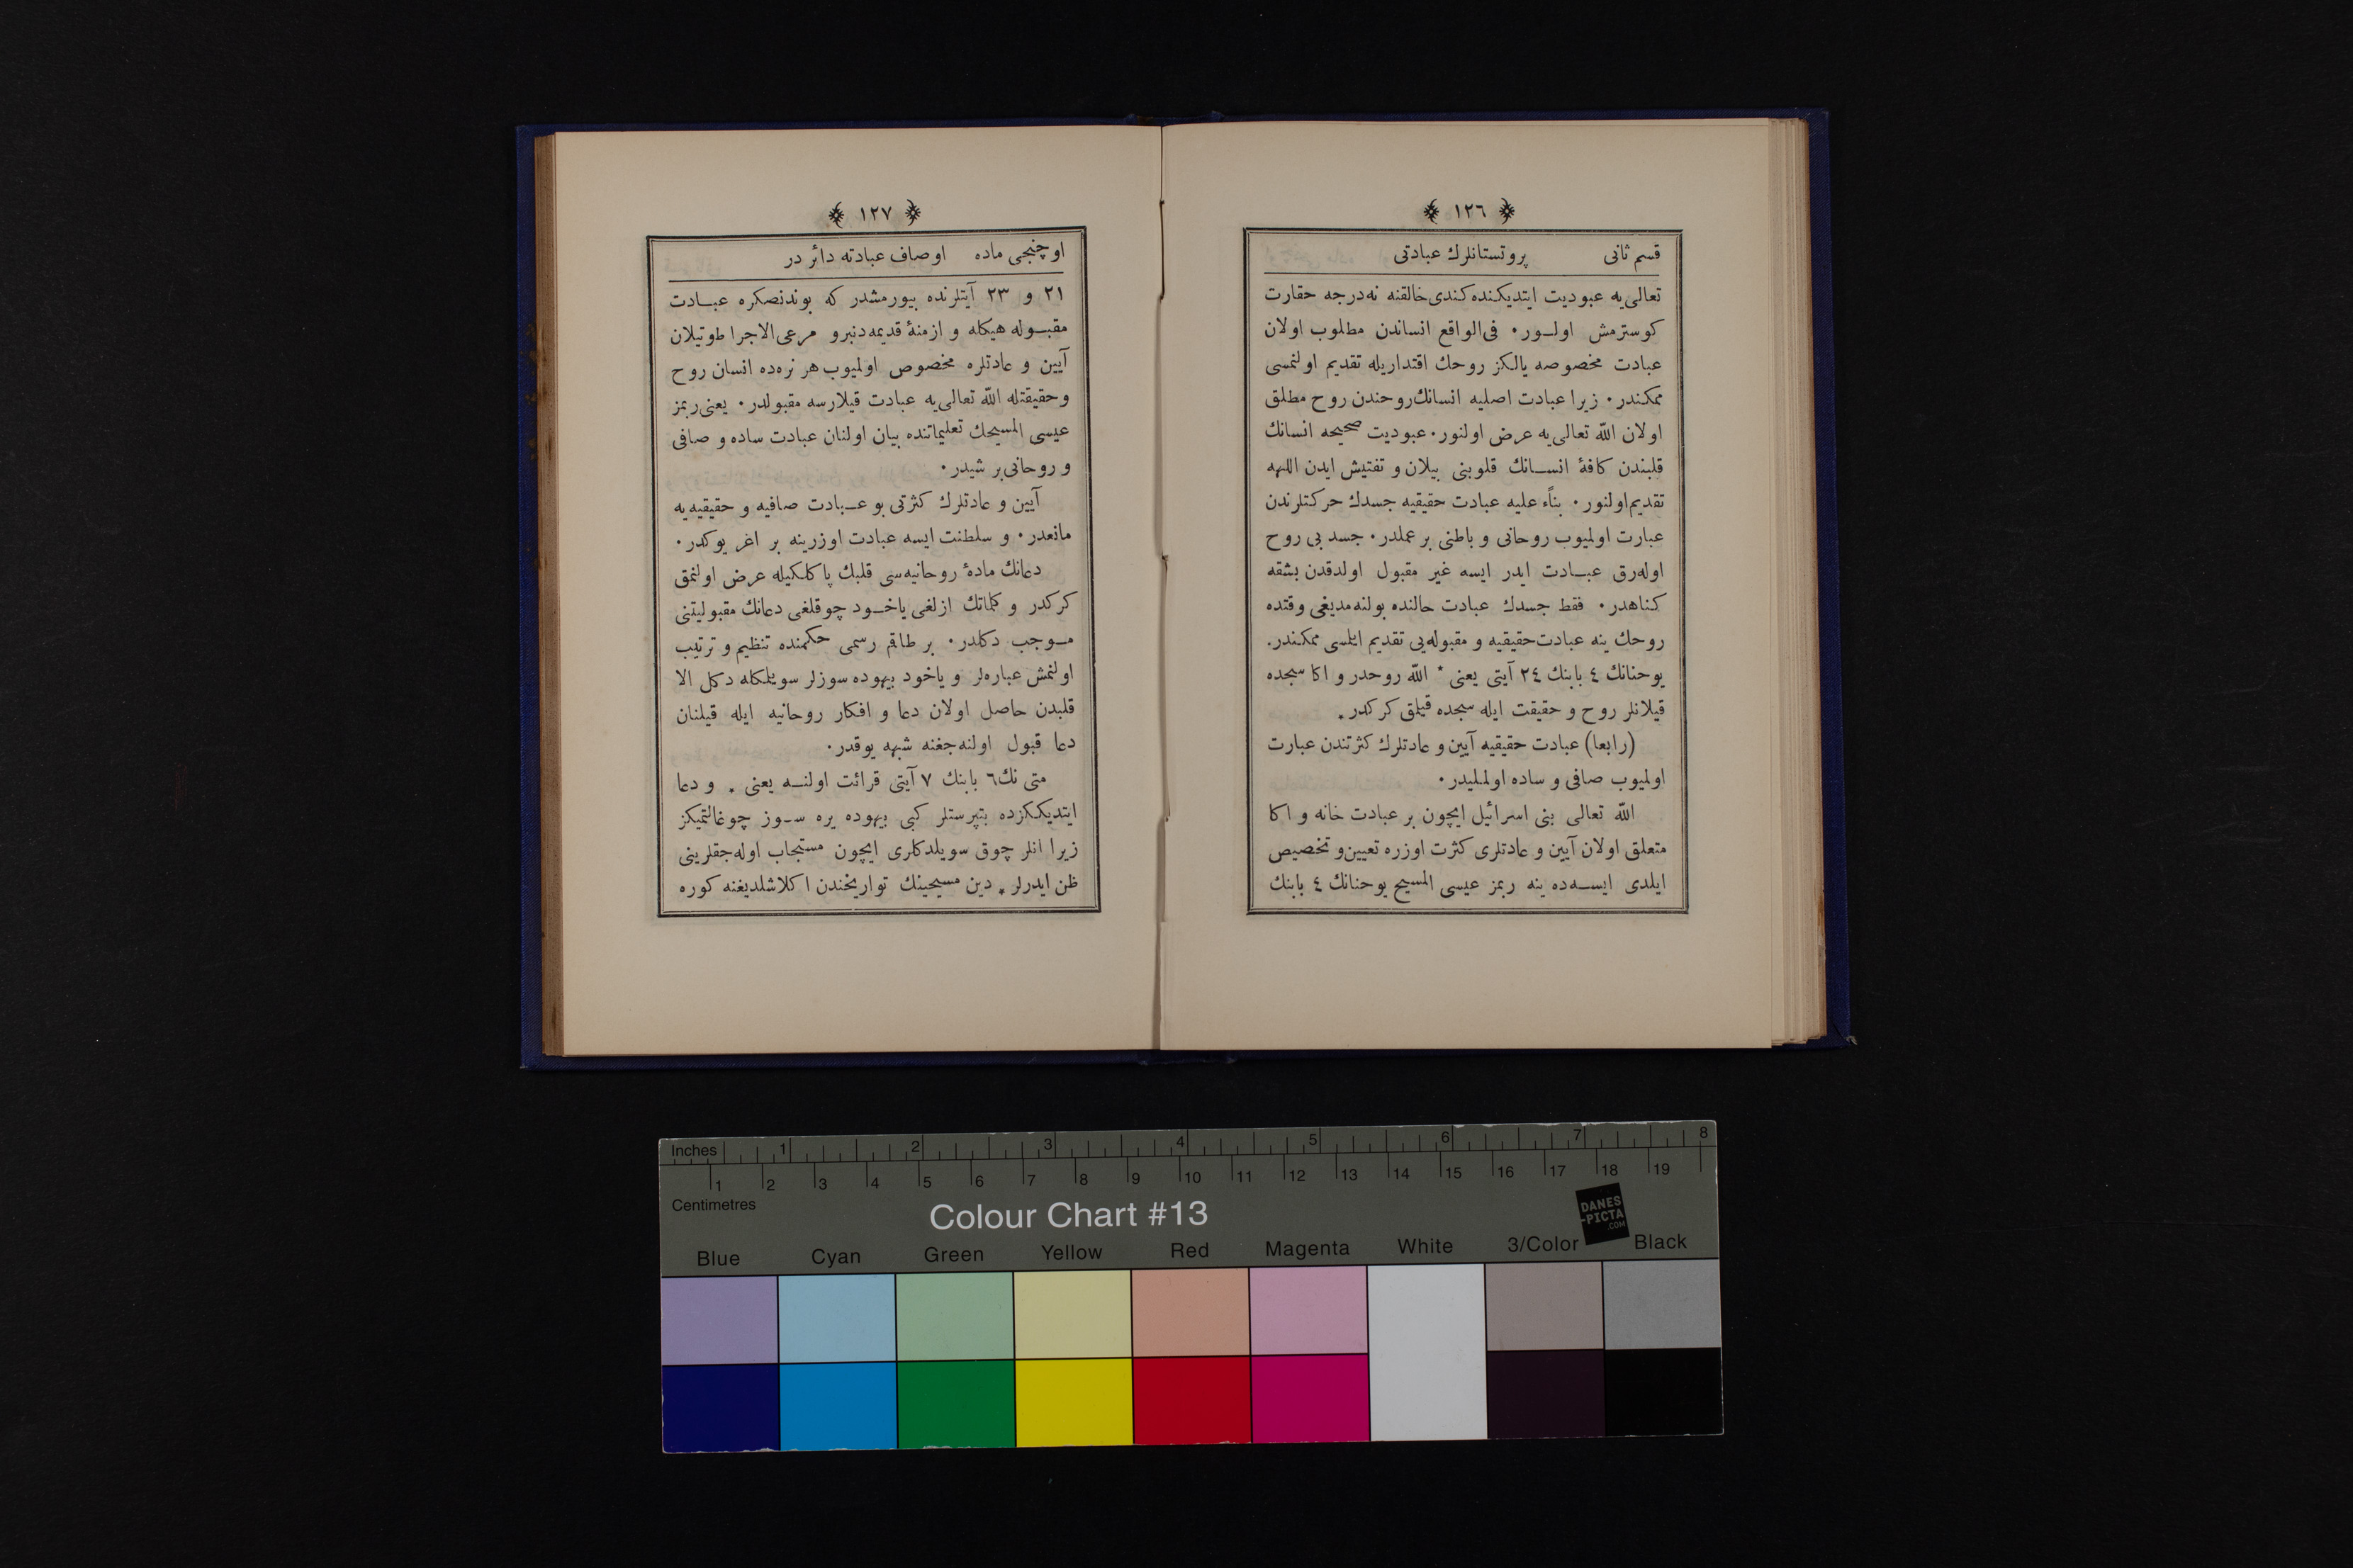 ﴿ ١٢٦ ﴾
قسم ثانی پروتستانلرك عبادتی
تعالی‌یه عبودیت ایتدیکنده کندی خالقنه نه‌درجه حقارت
کوسترمش اولور. فی‌الواقع انساندن مطلوب اولان
عبادت مخصوصه یالکز روحك اقتداریله تقدیم اولنمسی
ممکندر. زیرا عبادت اصلیه انسانك روحندن روح مطلق
اولان اللّه تعالی‌یه عرض اولنور. عبودیت صحیحه انسانك
قلبندن کافهٔ انسانك قلوبنی بیلان و تفتیش ایدن اللهه
تقدیم اولنور. بناًء علیه عبادت حقیقیه جسدك حرکتلرندن
عبارت اولمیوب روحانی و باطنی بر عملدر. جسد بی روح
اوله‌رق عبادت ایدر ایسه غیر مقبول اولدقدن بشقه
کناهدر. فقط جسدك عبادت حالنده بولنه‌مدیغی وقتده
روحك ینه عبادت حقیقیه و مقبوله‌یی تقدیم ایلمسی ممکندر.
یوحنانك ٤ بابنك ٢٤ آیتی یعنی * اللّه روحدر و اکا سجده
قیلانلر روح و حقیقت ایله سجده قیلمق کرکدر*
(رابعا) عبادت حقیقیه آیین و عادتلرك کثرتندن عبارت
اولمیوب صافی و ساده اولملیدر.
اللّه تعالی بنی اسرائیل ایچون بر عبادت خانه و اکا
متعلق اولان آیین و عادتلری کثرت اوزره تعیین و تخصیص
ایلدی ایسه‌ده ینه ربمز عیسی المسیح یوحنانك ٤ بابنك
﴿ ١٢٧ ﴾
اوچنجی ماده اوصاف عبادته دائر در
٢١ و ٢٣ آیتلرنده بیورمشدر که بوندنصکره عبادت
مقبوله هیکله و ازمنهٔ قدیمه‌دنبرو مرعی‌الاجرا طوتیلان
آیین و عادتلره مخصوص اولمیوب هر نره‌ده انسان روح
وحقیقتله اللّه تعالی‌یه عبادت قیلارسه مقبولدر. یعنی ربمز
عیسی المسیحك تعلیماتنده بیان اولنان عبادت ساده و صافی
و روحانی بر شیدر.
آیین و عادتلرك کثرتی بو عبادت صافیه و حقیقیه‌یه
مانعدر. و سلطنت ایسه عبادت اوزرینه بر اغر یوکدر.
دعانك مادهٔ روحانیه‌سی قلبك پاکلکیله عرض اولنمق
کرکدر و کلماتك ازلغی یاخود چوقلغی دعانك مقبولیتنی
موجب دکلدر. بر طاقم رسمی حکمنده تنظیم و ترتیب
اولنمش عباره‌لر و یاخود بیهوده سوزلر سویلمکله دکل الا
قلبدن حاصل اولان دعا و افکار روحانیه ایله قیلنان
دعا قبول اولنه‌جغنه شبهه یوقدر.
متی نك ٦ بابنك ٧ آیتی قرائت اولنه یعنی * و دعا
ایتدیککزده بتپرستلر کبی بیهوده یره سوز چوغالتمیکز
زیرا انلر چوق سویلدکلری ایچون مستجاب اوله‌جقلرینی
ظن ایدرلر* دین مسیحینك تواریخندن اکلاشلدیغنه کوره
Inches 1 2 3 4 5 6 7 8
1 2 3 4 5 6 7 8 9 10 11 12 13 14 15 16 17 18 19
Centimetres
Colour Chart #13
DANES
-PICTA
.COM
Blue Cyan Green Yellow Red Magenta White 3/Color Black